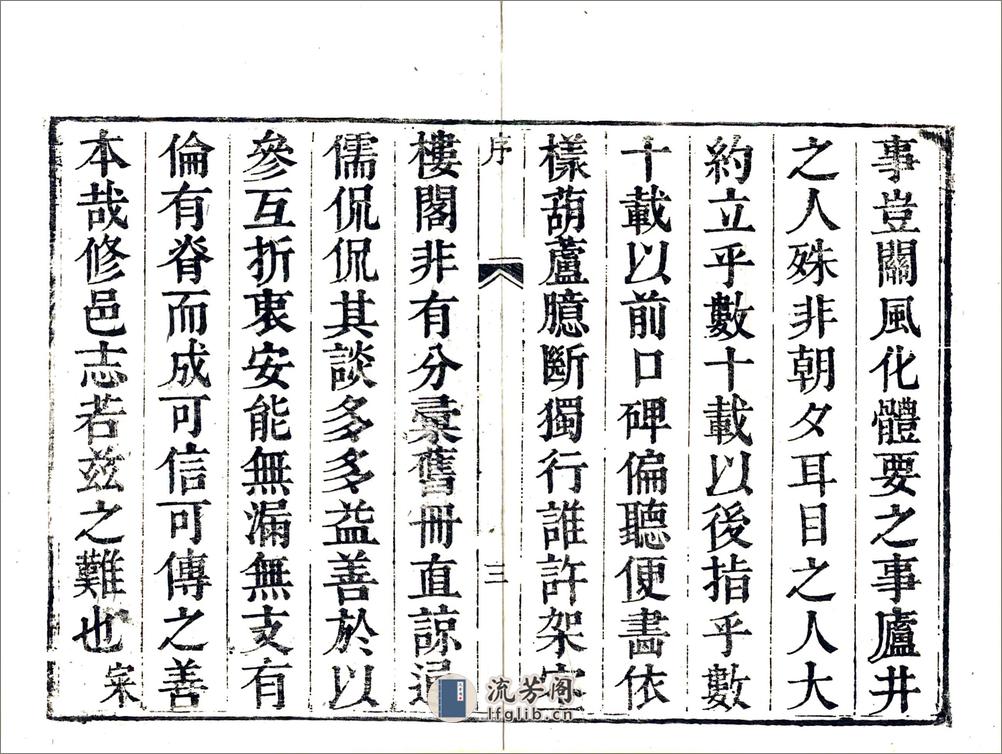 事豈關風化體要之事廬井
之人殊非朝夕耳目之人大
約立乎數十載以後指乎數
十載以前口碑偏聽便畵依
樣葫蘆臆斷獨行誰許架空
序
三
樓閣非有分彚舊冊直諒通
儒侃侃其談多多益善於以
參互折衷安能無漏無支有
倫有脊而成可信可傳之善
本哉修邑志若兹之難也宷
流芳阁
lfglib.cn